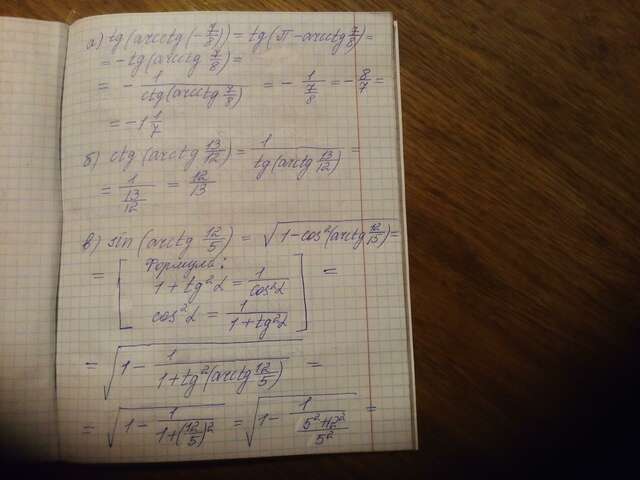 а) tg(arcctg(-7/8)) = tg(π - arcctg 7/8) =
= -tg(arcctg 7/8) =
= - 1/ctg(arcctg 7/8) = - 1/(7/8) = - 8/7 =
= -1 1/7
б) ctg(arctg 13/12) = 1/tg(arctg 13/12) =
= 1/(13/12) = 12/13
в) sin(arctg 12/5) = √(1-cos²(arctg 12/5)) =
= [Формула:
1+tg²α = 1/cos²α
cos²α = 1/(1+tg²α)] =
= √(1 - 1/(1+tg²(arctg 12/5))) =
= √(1 - 1/(1+(12/5)²)) = √(1 - 1/((5²+12²)/5²)) =